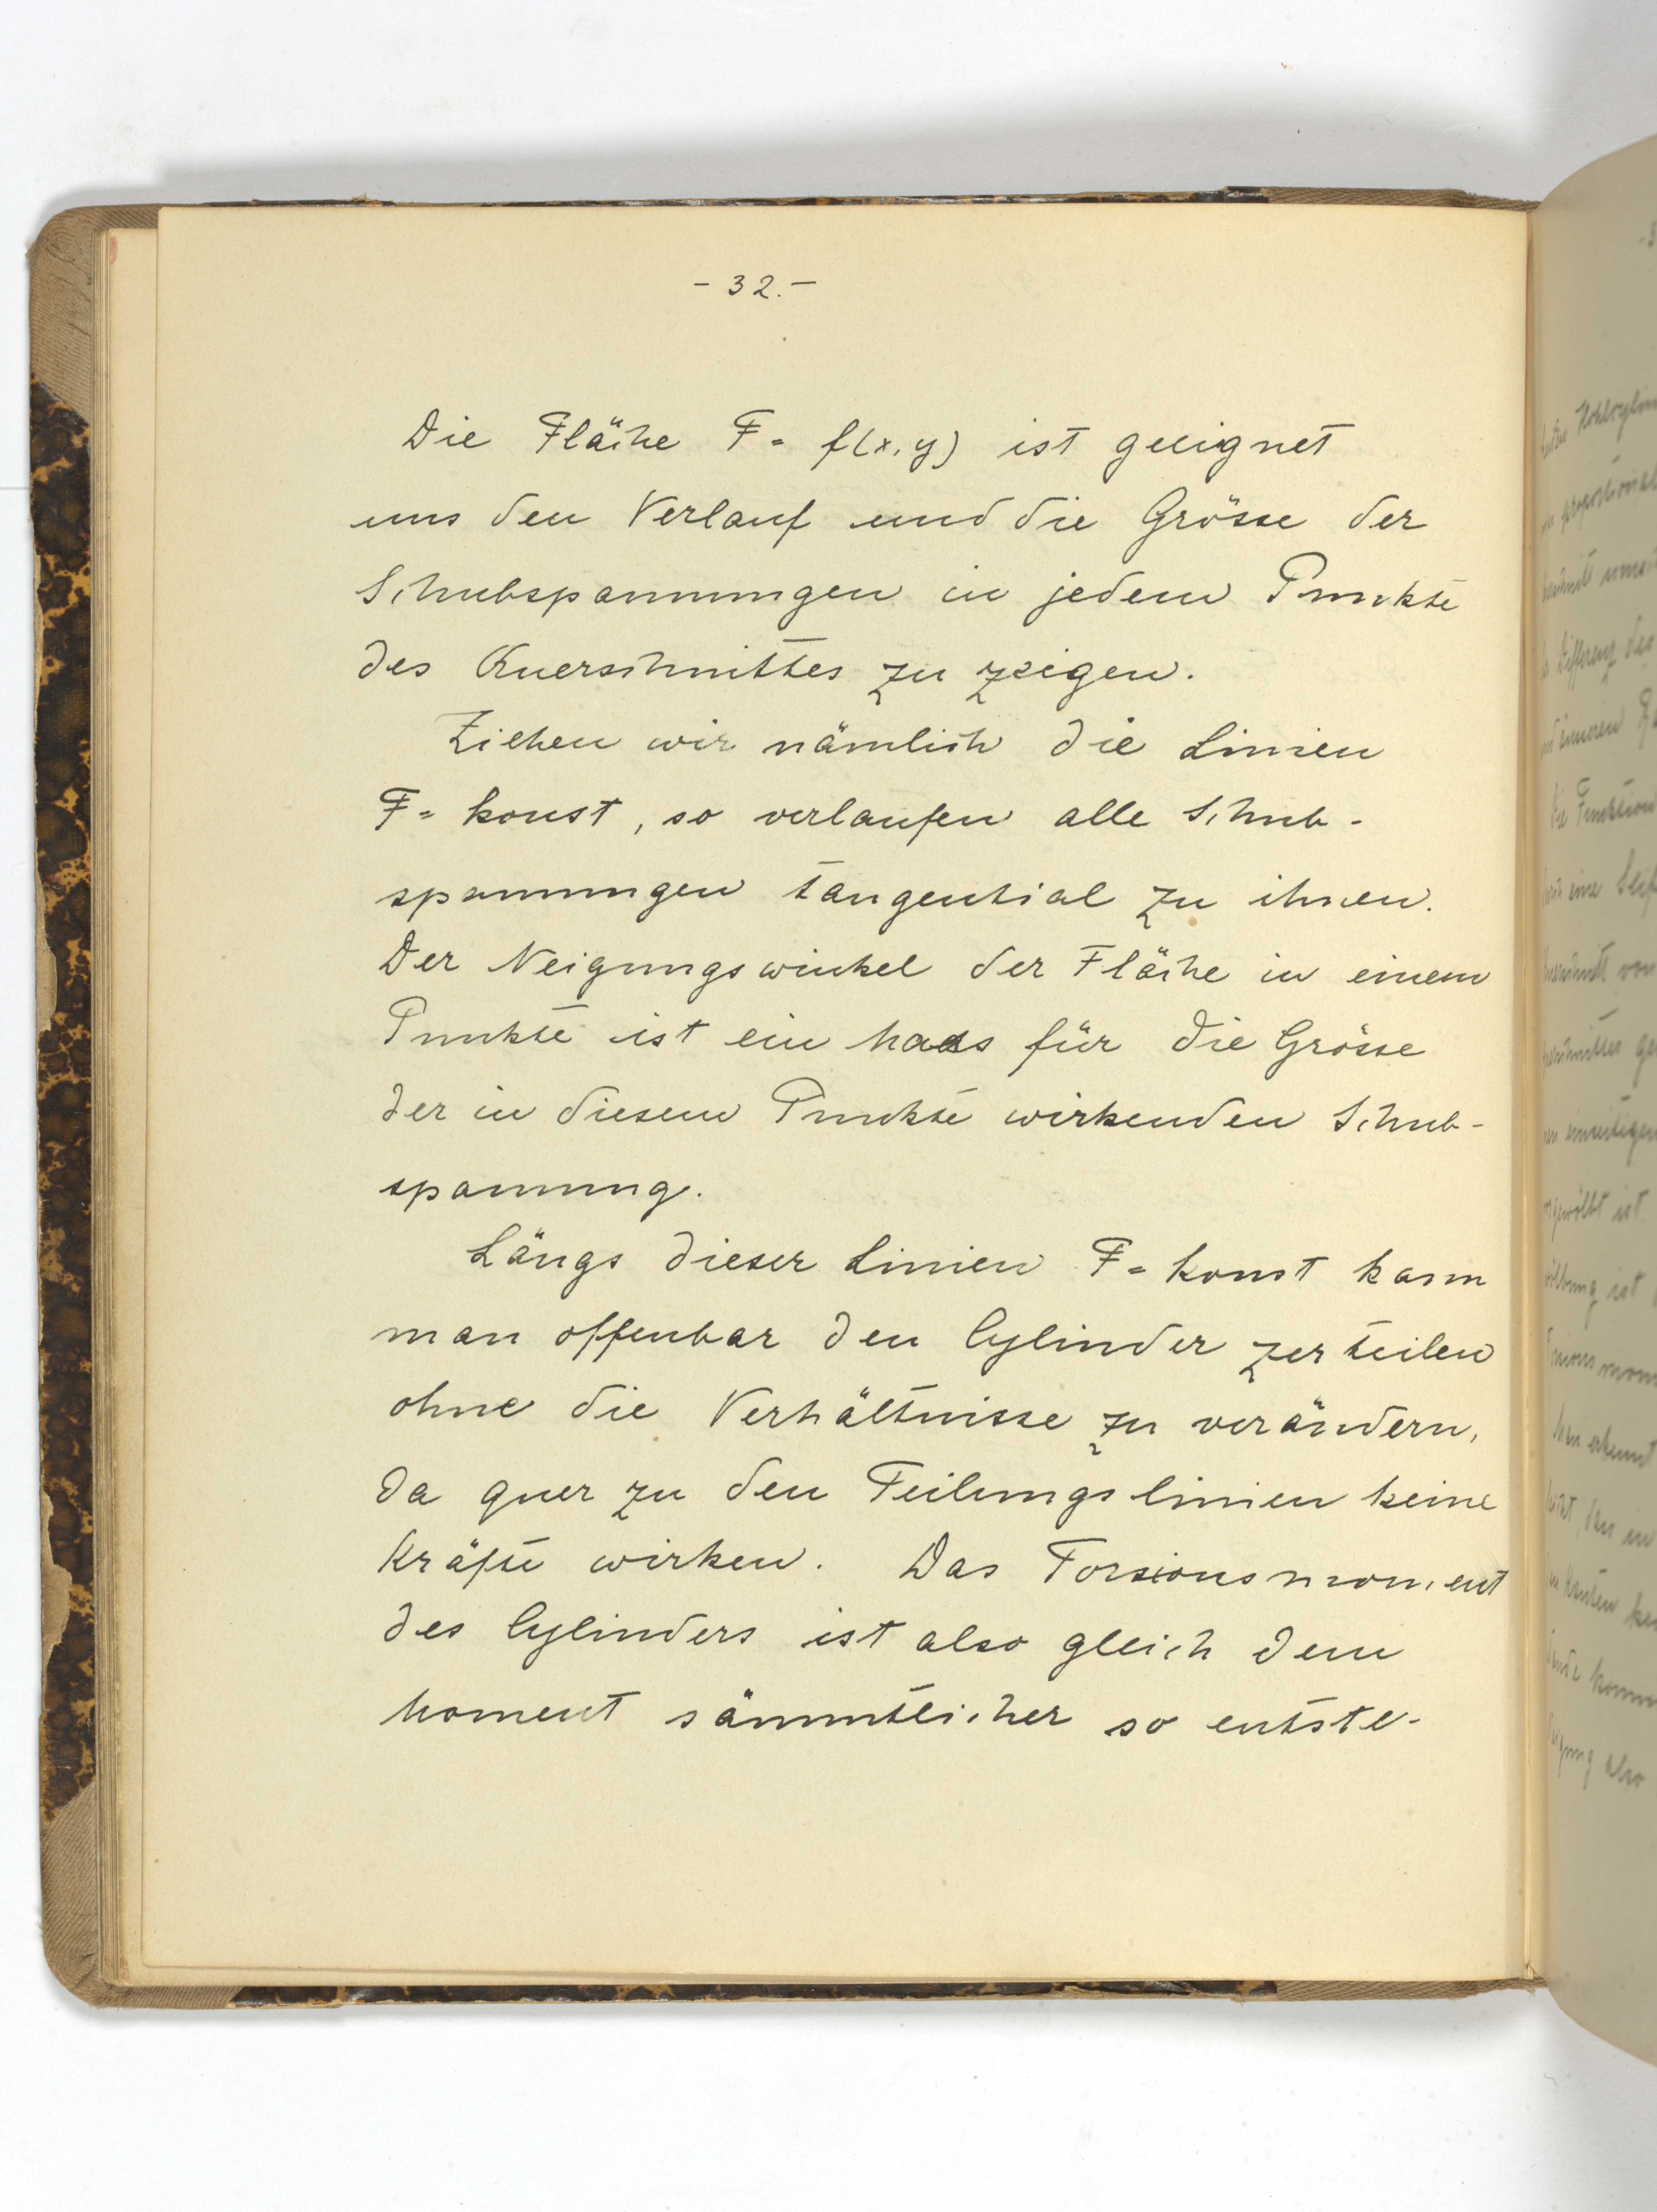 - 32. -
Die Fläche F = f(x, y) ist geeignet
uns den Verlauf und die Grösse der
Schubspannungen in jedem Punkte
des Querschnittes zu zeigen.
Ziehen wir nämlich die Linien
F = konst, so verlaufen alle Schub-
spannungen tangential zu ihnen.
Der Neigungswinkel der Fläche in einem
Punkte ist ein Maas für die Grösse
der in diesem Punkte wirkenden Schub-
spannung.
Längs dieser Linien F = konst kann
man offenbar den Cylinder zerteilen
ohne die Verhältnisse zu verändern,
da quer zu den Teilungslinien keine
Kräfte wirken. Das Torsionsmoment
des Cylinders ist also gleich dem
Moment sämmtlicher so entste-